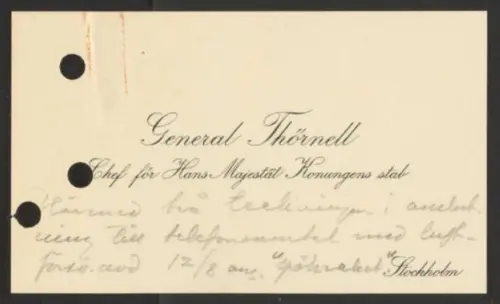 General Thörnell
Chef för Hans Majestät Konungens stab
Härmed två teckningar i anled-
ning till telefonsamtal med luft-
12/8 ang. "
Stockholm